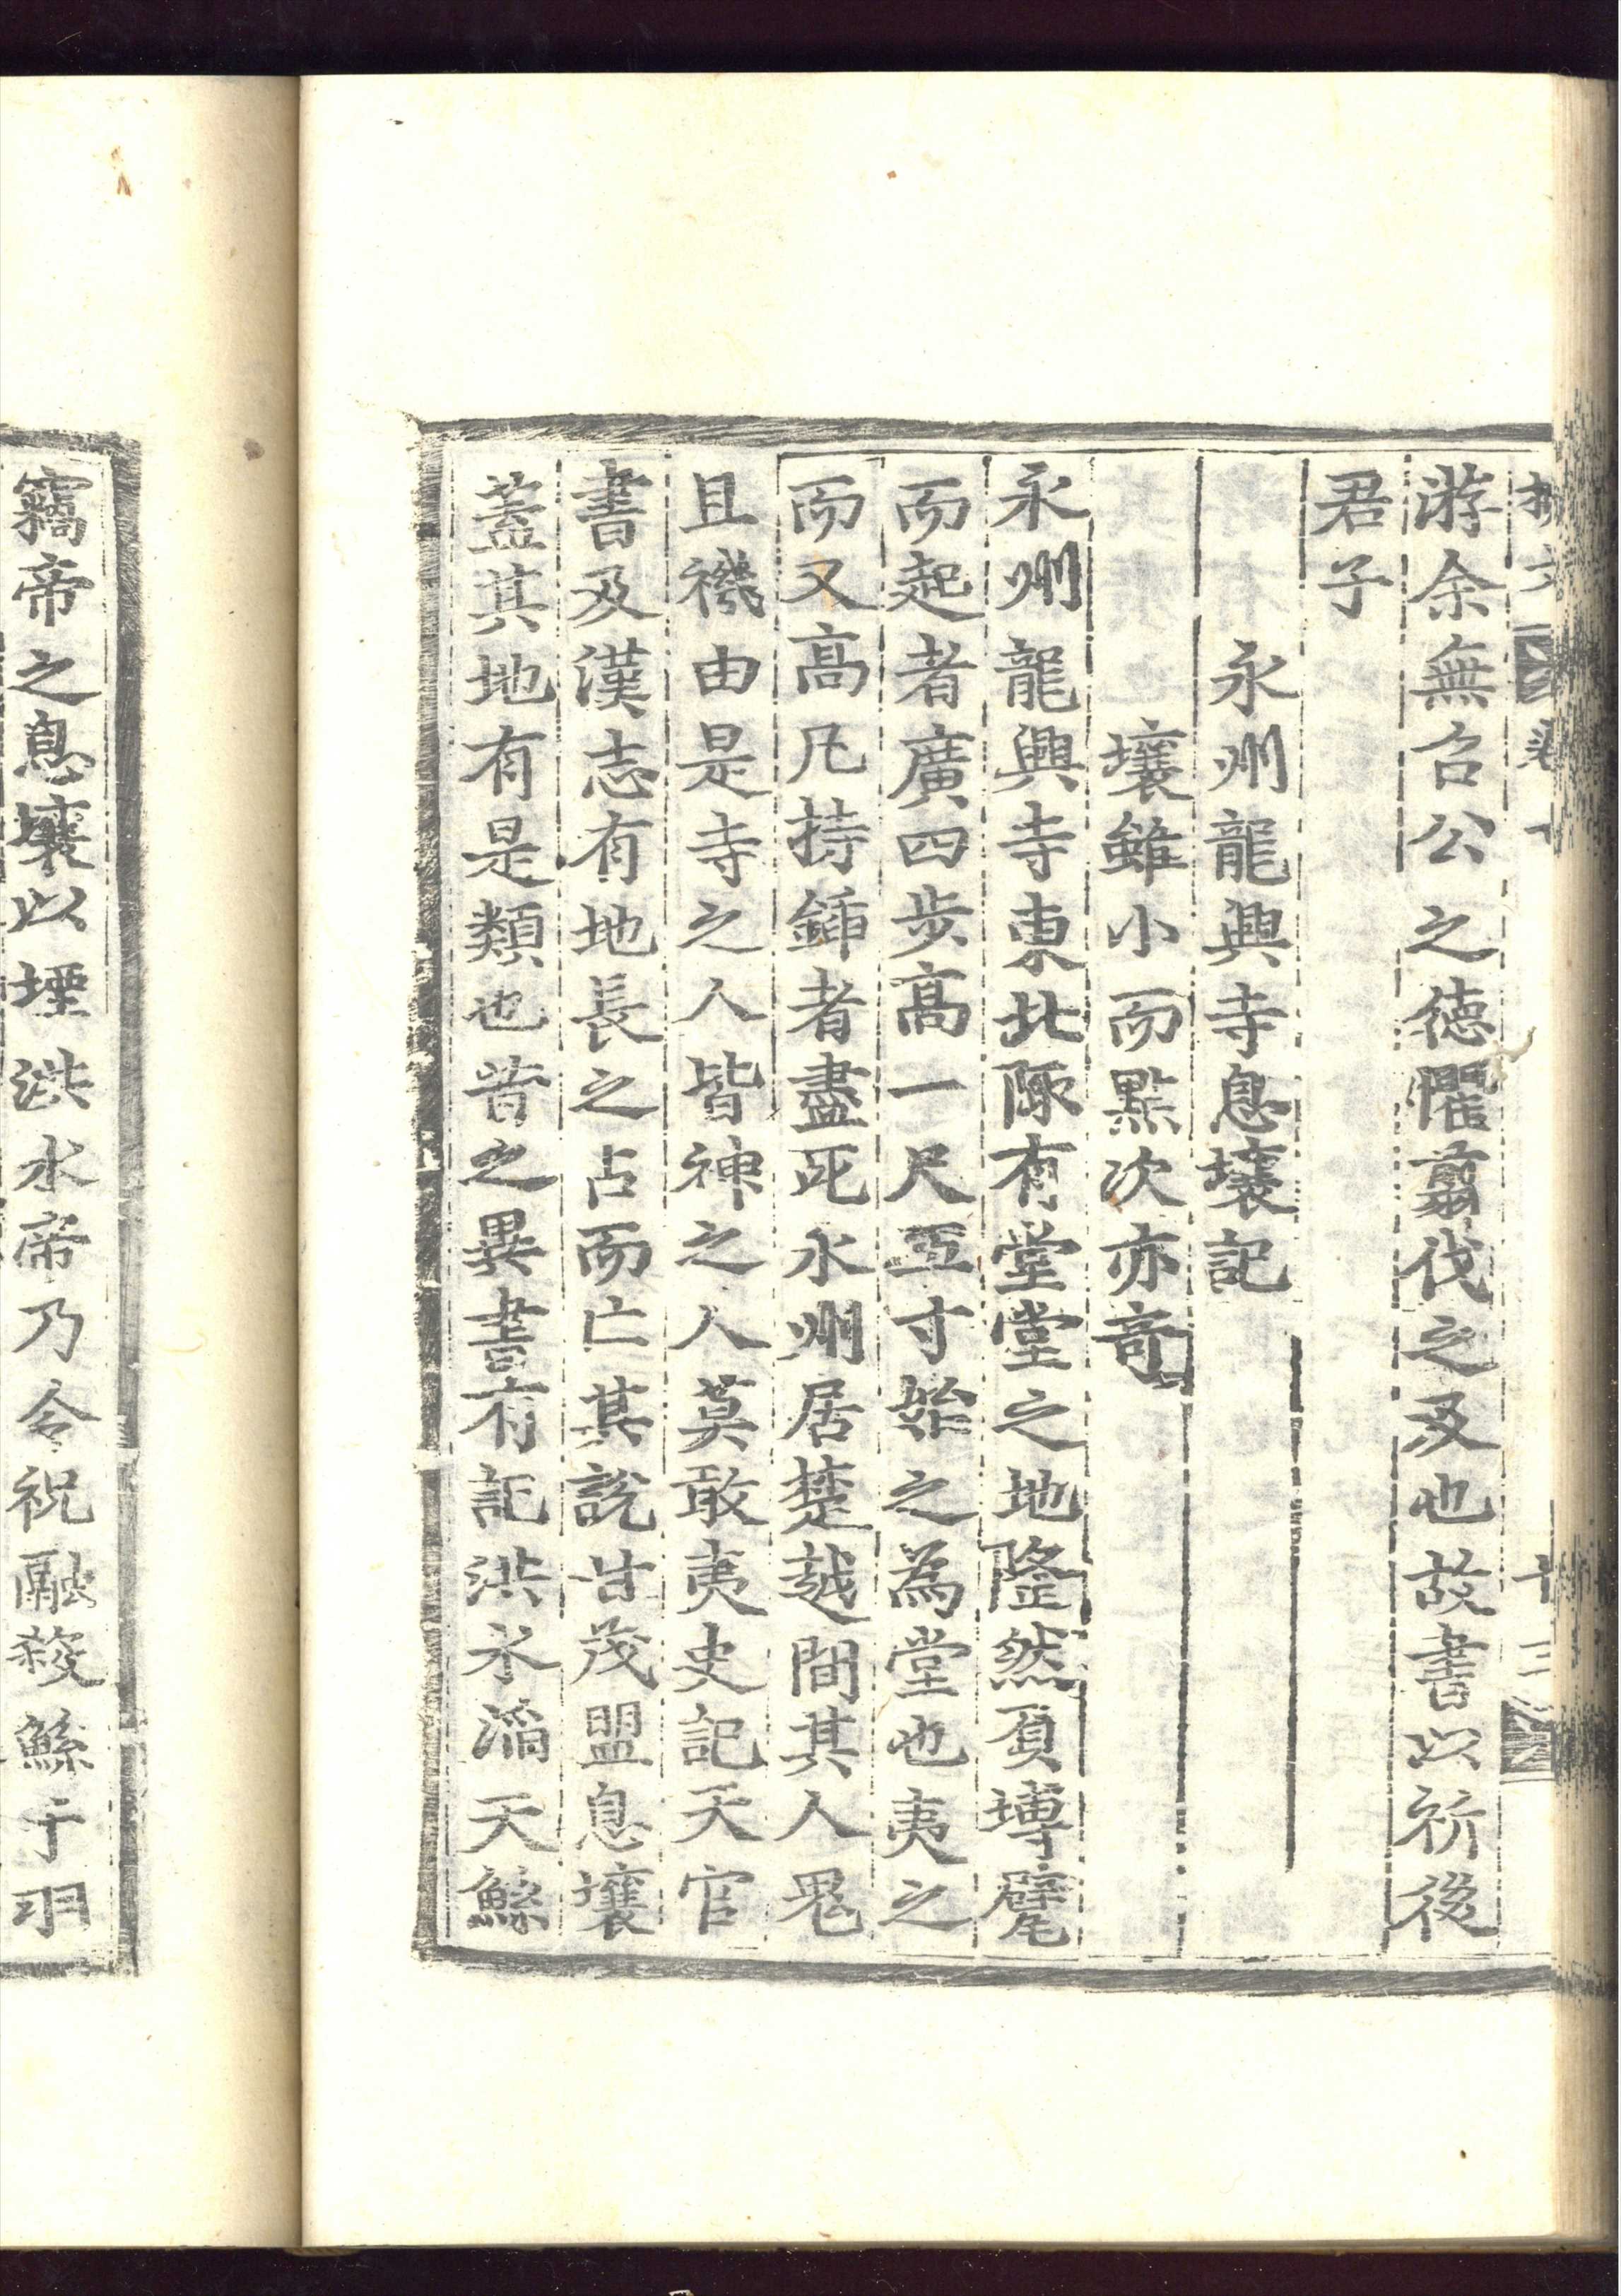 游余無召公之德懼翦伐之及也故書以祈後
君子
永州龍興寺息壤記
壤雖小而點次亦奇
永州龍興寺東北陬有堂堂之地隆然負塼甓
而起者廣四步高一尺五寸始之為堂也夷之
而又高凡持鍤者盡死永州居楚越間其人鬼
且禨由是寺之人皆神之人莫敢夷史記天官
書及漢志有地長之占而亡其說甘茂盟息壤
蓋其地有是類也昔之異書有記洪水滔天鯀
竊帝之息壤以堙洪水帝乃令祝融殺鯀于羽